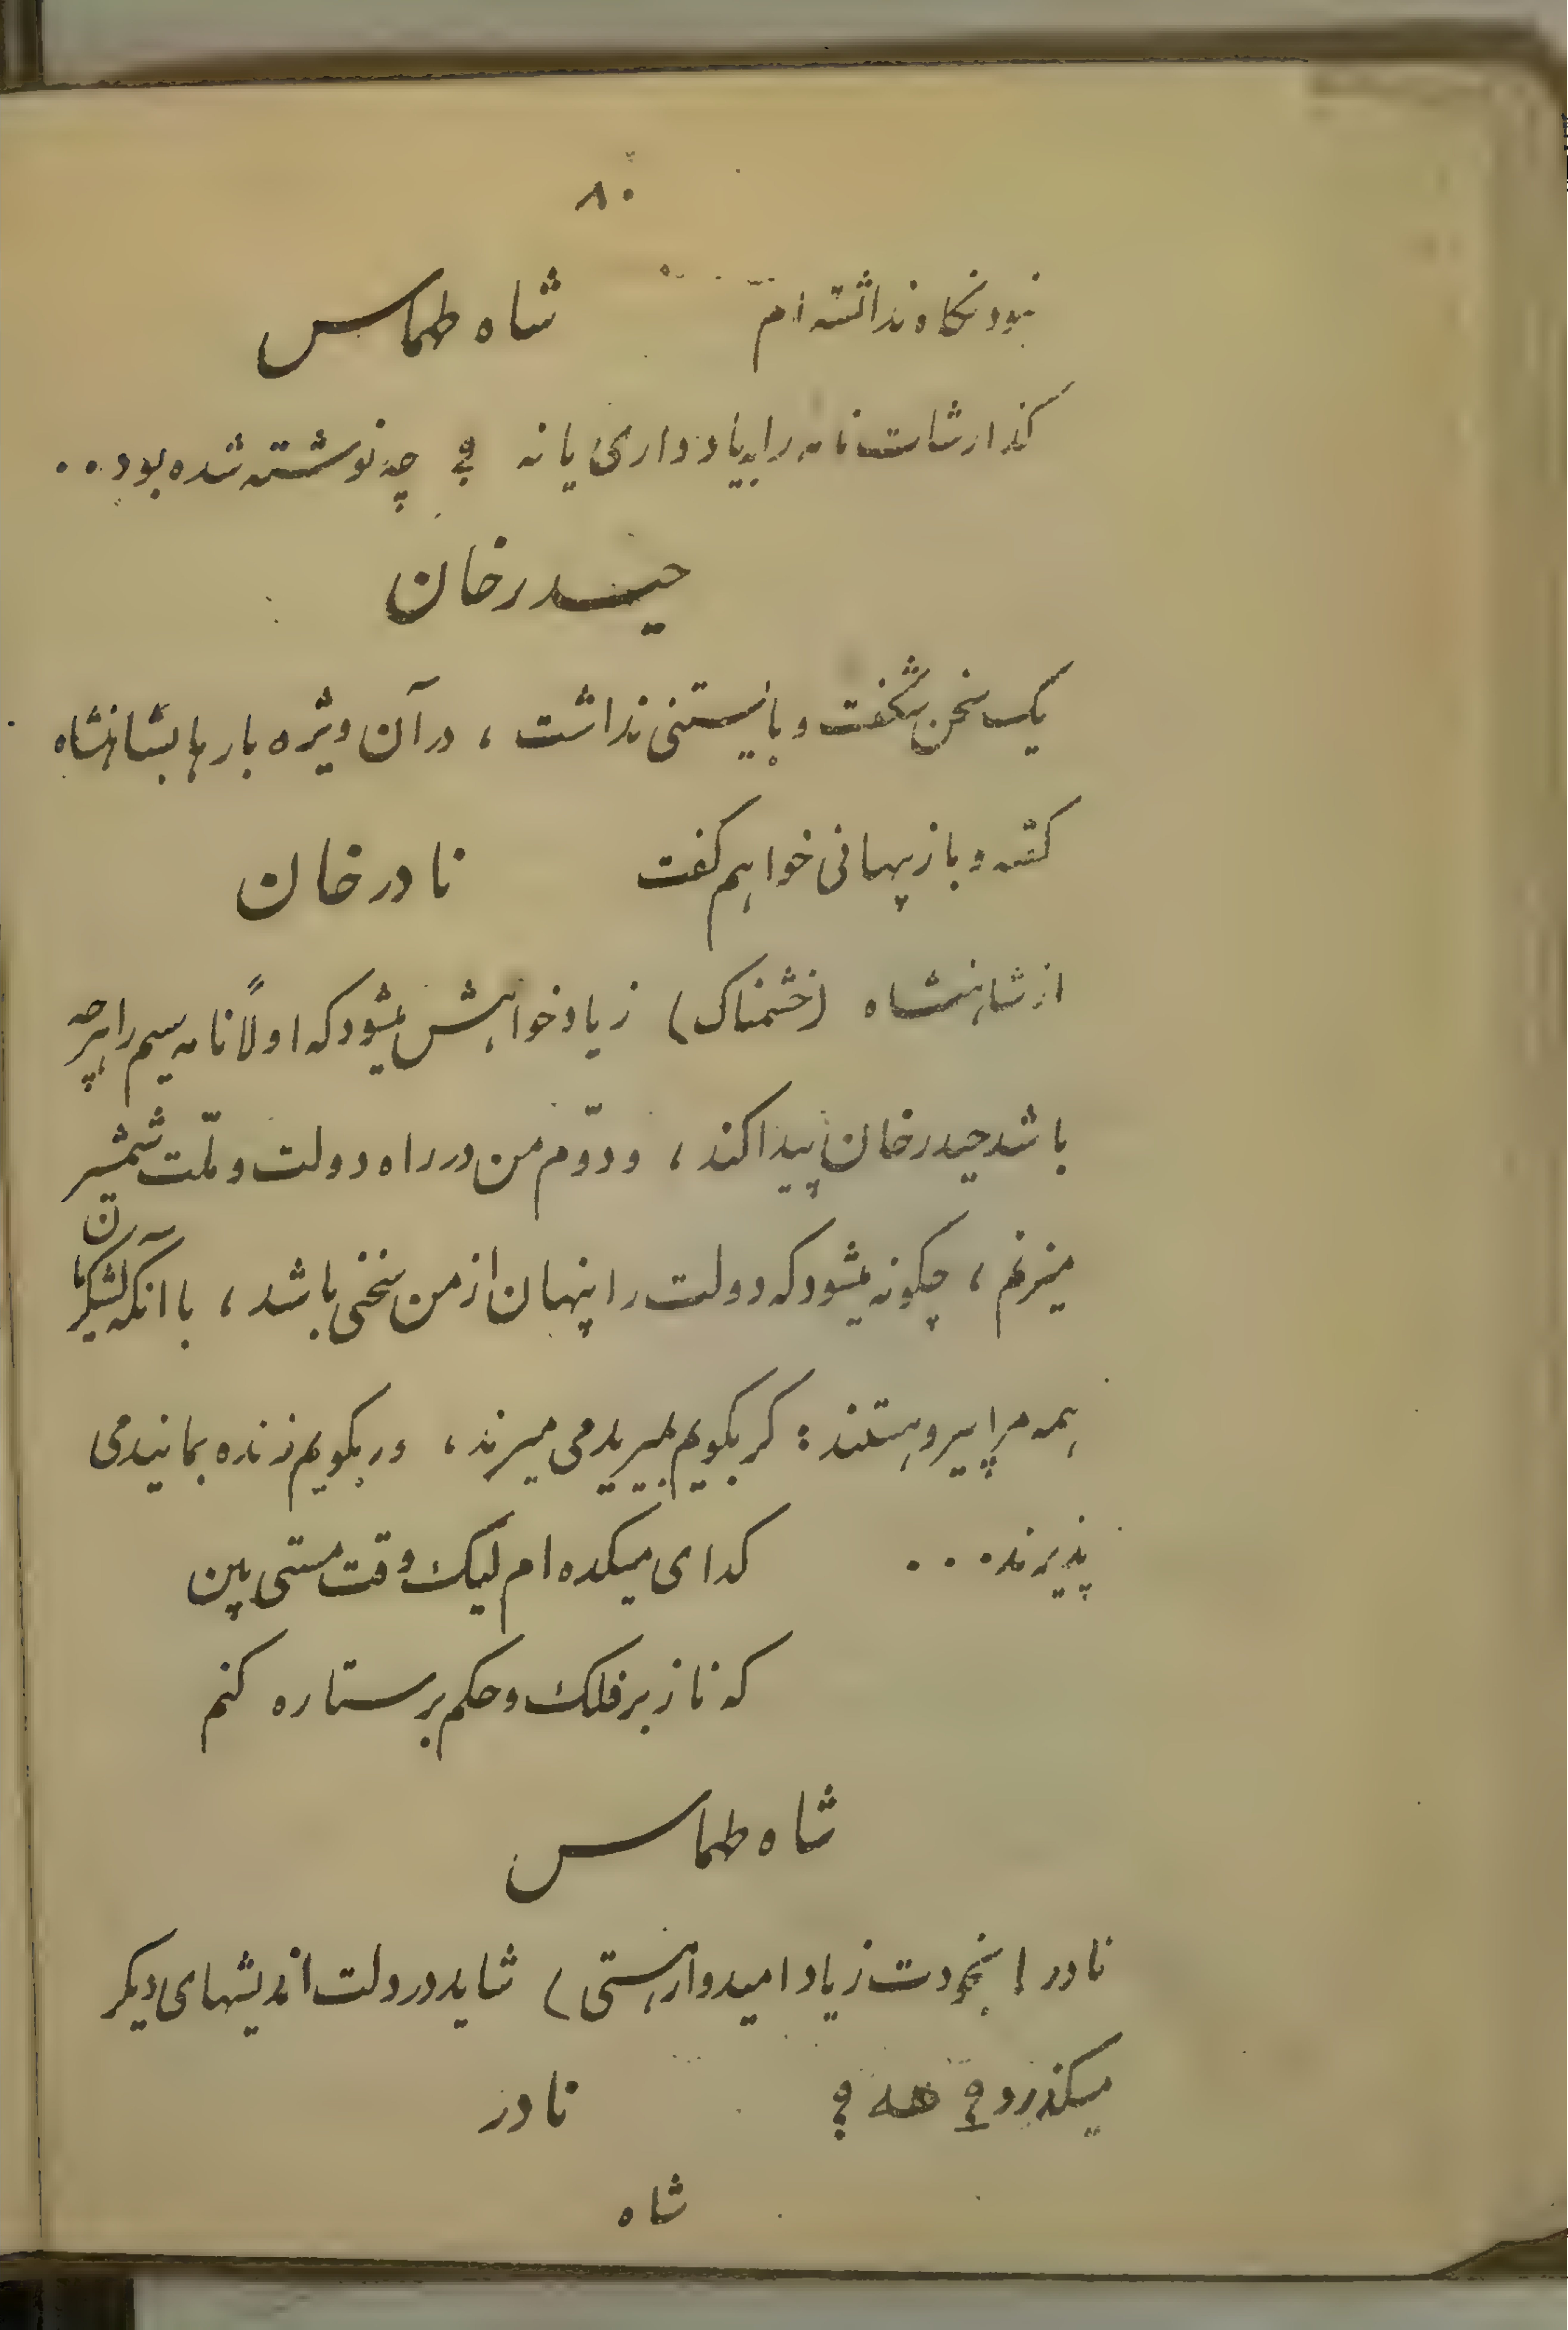 ۸۰
نبود نکاه نداشته ام شاه طهماس
کذارشات نامه را بیاد داری یا نه ؟ چه نوشته شده بود..
حیدرخان
یک سخن شگفت و بایستنی نداشت ، در آن ویژه بارها بشاهنشاه
کفته و باز پنهانی خواهم کفت نادرخان
از شاهنشاه (خشمناک) زیاد خواهش میشود که اولاً نامه سیم را هرچه
باشد حیدرخان پیدا کند ، و دوّم من در راه دولت و ملّت شمشیر
میزنم ، چکونه میشود که دولت را پنهان از من سخنی باشد ، با آنکه لشکریان
همه مرا پیرو هستند : کر بکویم بمیرید می میرند ، ور بکویم زنده بمانید می
پذیرند... کدای میکده ام لیک وقت مستی بین
که ناز بر فلک و حکم بر ستاره کنم
شاه طهماس
نادر ! بخودت زیاد امیدوار هستی ) شاید در دولت اندیشهای دیکر
میکذرد ؟ هه ؟ نادر
شاه